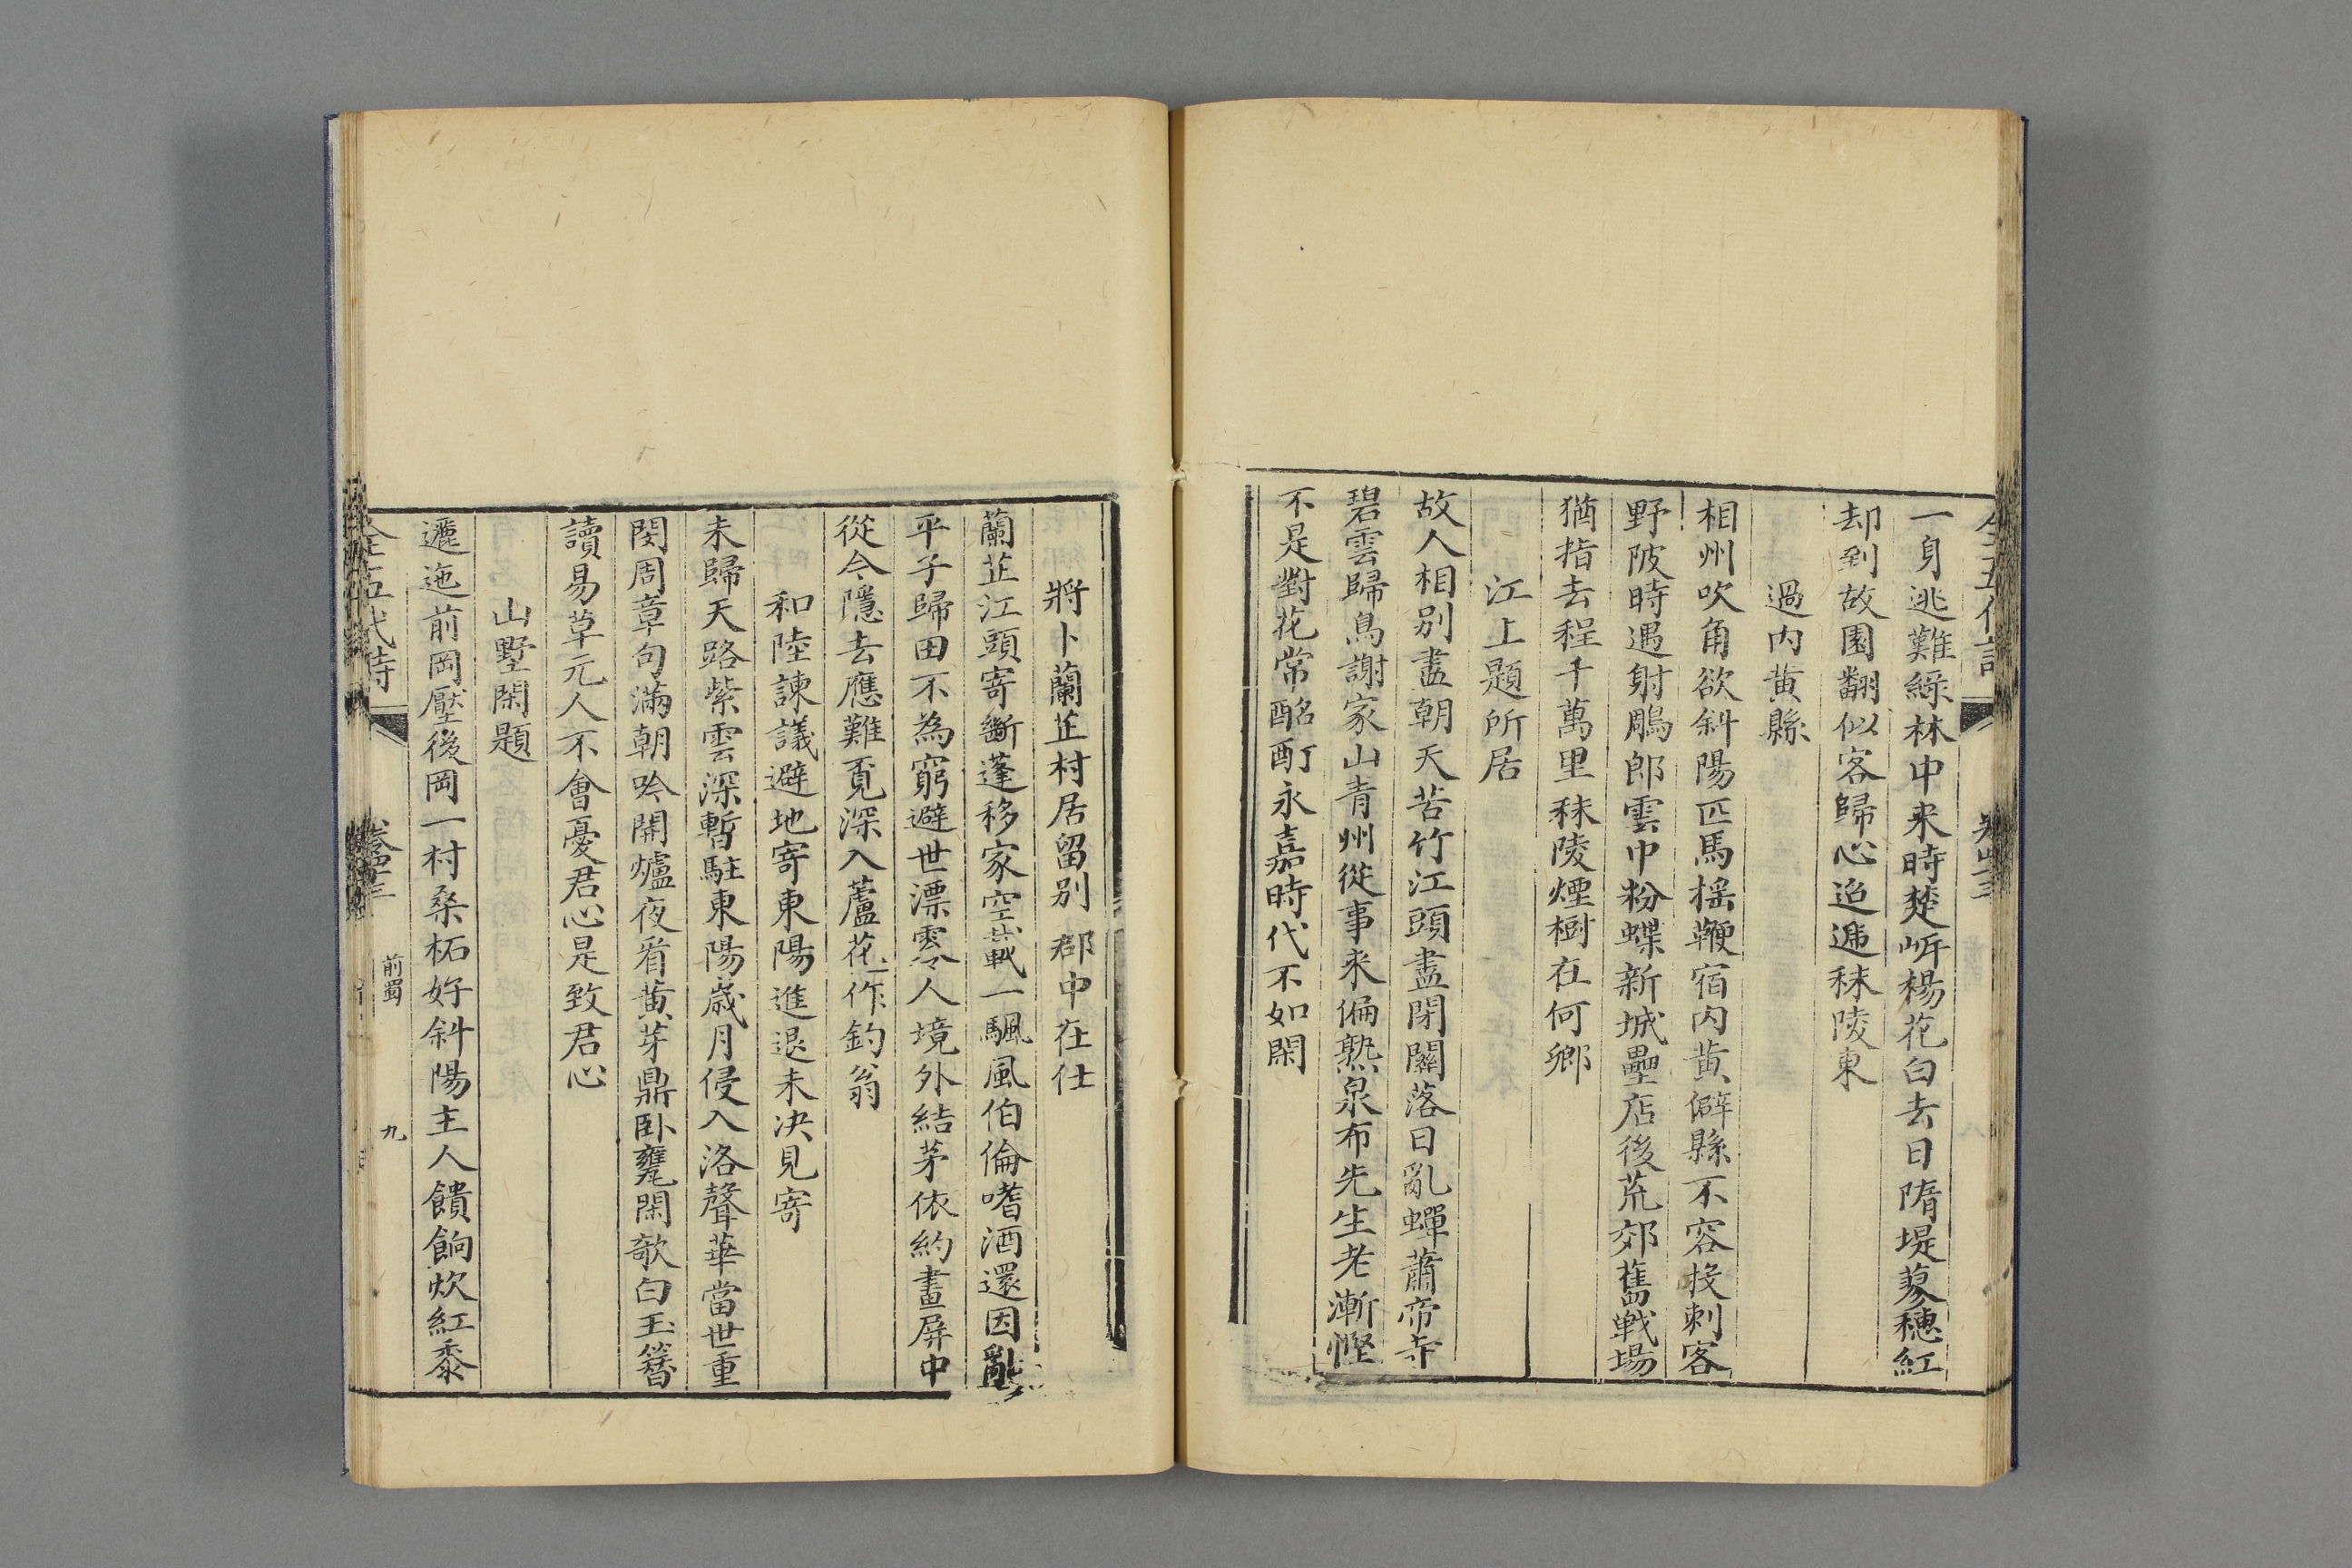 一身逃難綠林中来時楚岍楊花白去日隋堤蓼穗紅
却到故園翻似客歸心迢遞秣陵東
過内黄縣
相州吹角欲斜陽匹馬揺鞭宿内黄僻縣不容投刺客
野陂時遇射鵰郎雲中粉蝶新城壘店後荒郊舊戰場
猶指去程千萬里秣陵煙樹在何鄉
江上題所居
故人相别盡朝天苦竹江頭盡閉關落日亂蟬蕭帝寺
碧雲歸鳥謝家山青州從事来偏熟泉布先生老漸慳
不是對花常酩酊永嘉時代不如閑
將卜蘭芷村居留别郡中在仕
蘭芷江頭寄斷蓬移家空載一颿風伯倫嗜酒還因亂
平子歸田不為窮避世漂零人境外結茅依約畫屏中
從今隱去應難覔深入蘆花作釣翁
和陸諫議避地寄東陽進退未决見寄
未歸天路紫雲深暫駐東陽歲月侵入洛聲華當世重
閔周章句滿朝吟開爐夜看黄芽鼎卧甕閑欹白玉簪
讀易草元人不會憂君心是致君心
山墅閑題
邐迤前岡壓後岡一村桑柘好斜陽主人饋餉炊紅黍
全五代詩
前蜀
九